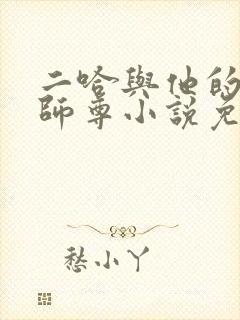 二哈與他的
師尊小說免
愁小丫